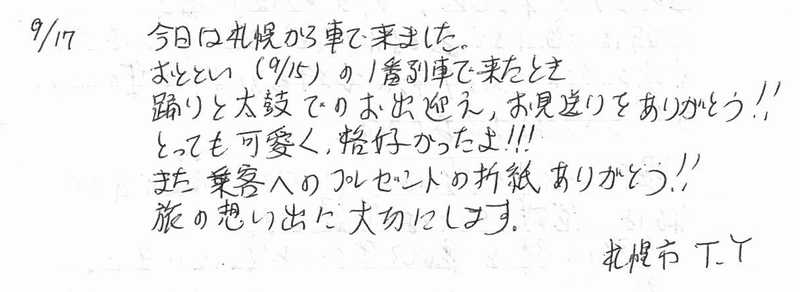 9/17 今日は札幌から車で来ました。
おととい(9/15)の1番列車で来たとき
踊りと太鼓でのお出迎え、お見送りをありがとう!!
とっても可愛く、格好かったよ!!!
また乗客へのプレゼントの折紙ありがとう!!
旅の想い出に大切にします。
札幌市 T.Y